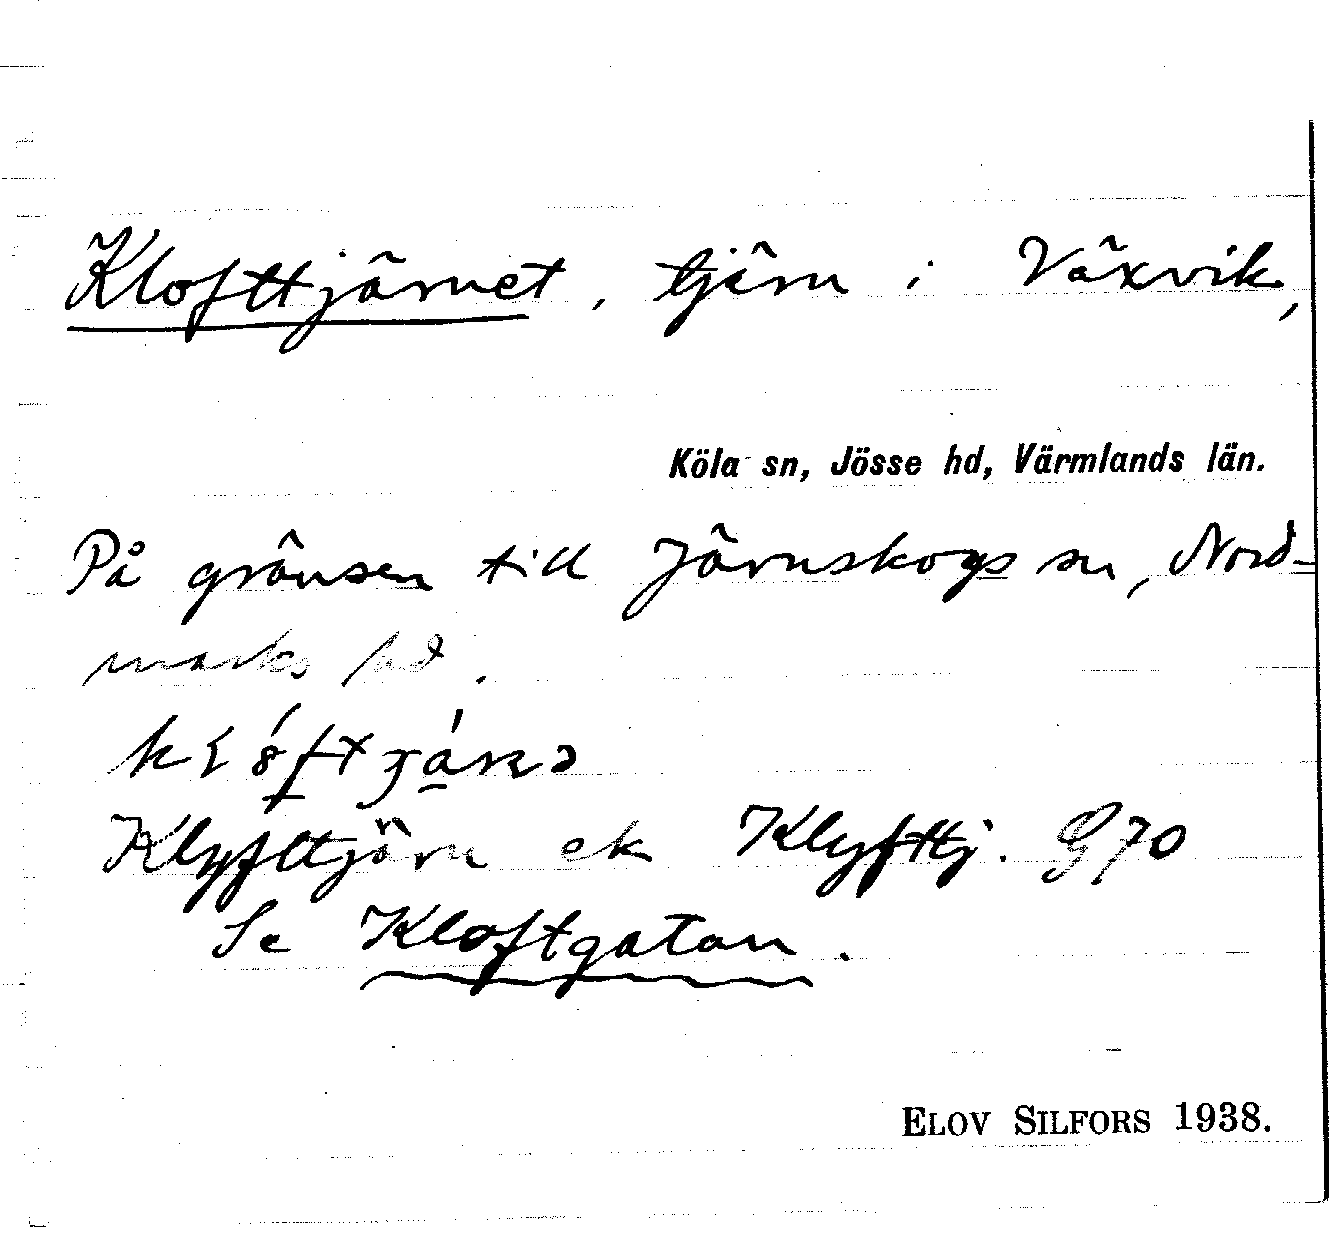 Klofttjärnet, tjärn i Växvik,
Köla sn, Jösse hd, Värmlands län.
På gränsen till Järnskogs sn, Nord-
marks hd.
Klyfttjärn ek Klyfttj. G 70
Se Kloftgatan.
ELOV SILFORS 1938.